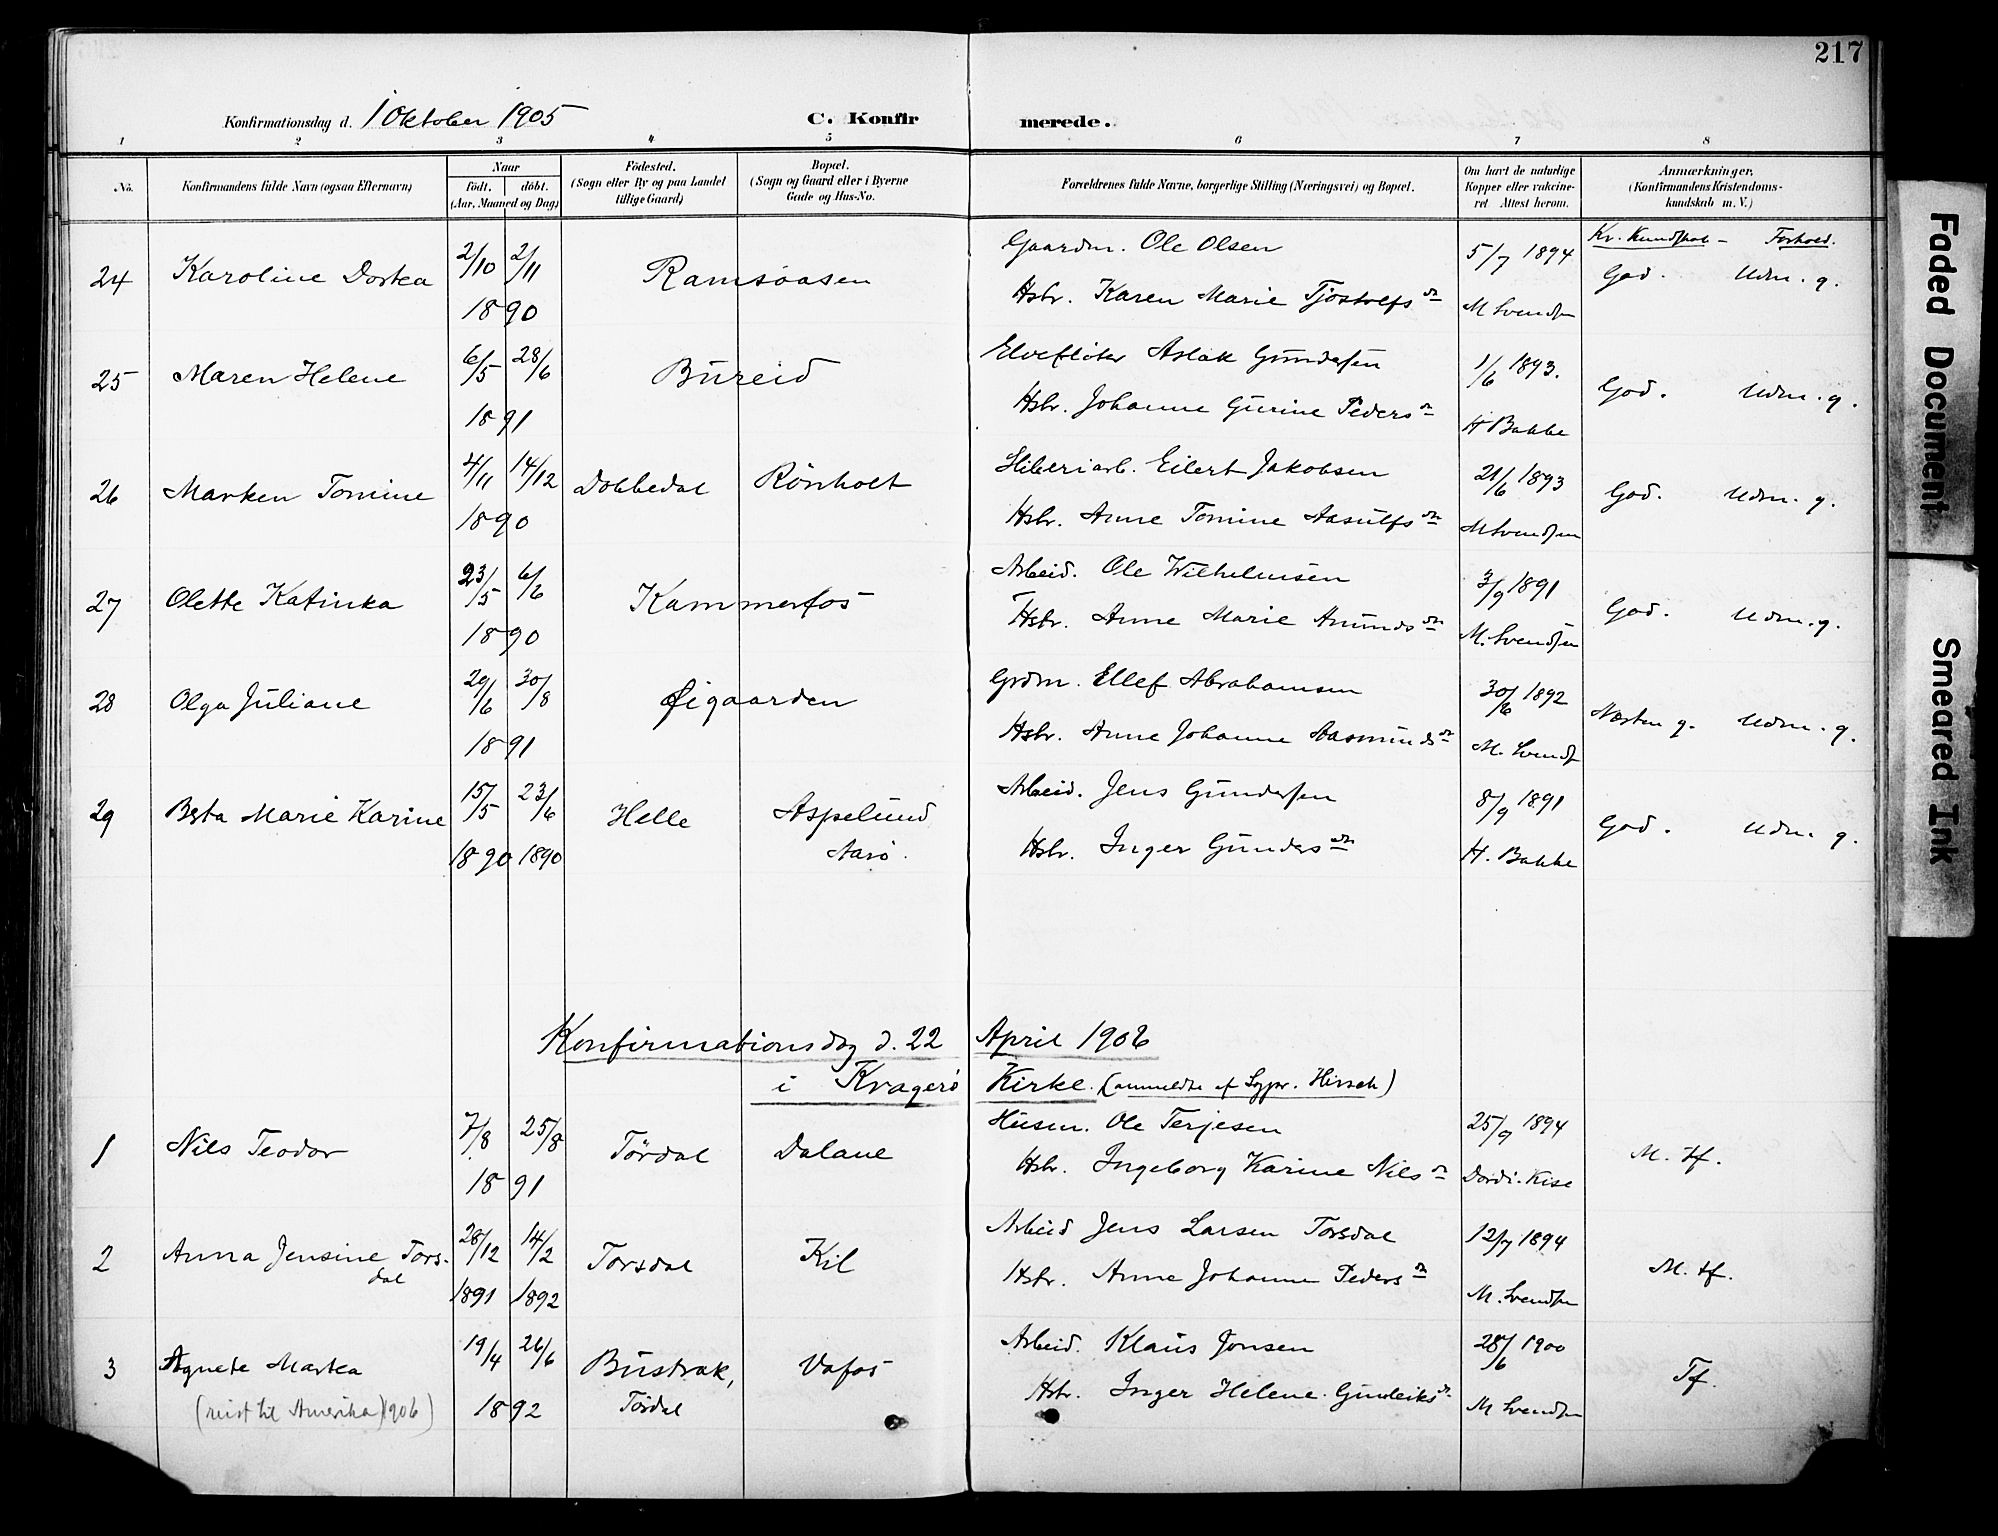 217
Konfirmationsdag d. 1 Oktober 1905 C. Konfirmerede.
1 2 3 4 5 6 7 8
No. Konfirmandens fulde Navn (ogsaa Efternavn) Naar födt. döbt. (Aar, Maaned og Dag) Födested. (Sogn eller By og paa Landet tillige Gaard) Bopæl. (Sogn og Gaard eller i Byerne Gade og Hus-No. Forældrenes fulde Navne, borgerlige Stilling (Næringsvei) og Bopæl. Om havt de naturlige Kopper eller vaccineret Attest herom. Anmærkninger. (Konfirmandens Kristendomskundskab m. V.)
Kr. Kundskab - Forhold.
24 Karoline Dortea 2/10 2/11 1890 Ramsöasen Gaardm. Ole Olsen 5/7 1894 God. Udm. g.
Hstr. Karen Marie Tjöstolfsdr M Svendsen
25 Maren Helene 6/5 28/6 1891 Büreid Elveflöter Aslak Gündersen 1/6 1893. God. Udm. g.
Hstr. Johanne Gurine Pedersdr H Bakke
26 Marken Tomine 4/11 14/12 1890 Dobbedal Rönholt Sliberiarb. Eilert Jakobsen 21/6 1893 God. Udm. g.
Hstr. Anne Tomine Aasulfsdr M Svendsen
27 Olette Katinka 23/5 6/6 1890 Kammerfos Arbeid. Ole Wilhelmsen 3/9 1891 God. Udm. g.
Hstr. Anne Marie Anundsdr M. Svendsen
28 Olga Juliane 29/6 30/8 1891 Øigaarden Grdm. Ellef Abrahamsen 30/6 1892 Næsten g. Udm. g.
Hstr. Anne Johanne Aasmundsdr M. Svends
29 Berta Marie Karine 15/5 23/6 1890 1890 Helle Aspelund Aarö. Arbeid. Jens Gundersen 8/9 1891 God. Udm. g.
Hstr. Inger Gundersdr H. Bakke
Konfirmationsdag d. 22 April 1906
i Kragerö Kirke. (anmeldte af Sogpr. Hirsch)
1 Nils Teodor 7/8 25/8 1891 Tördal Dalane Husm. Ole Terjesen 25/9 1894 M. tf.
Hstr. Ingeborg Karine Nilsdr Dordi Kise
2 Anna Jensine Torsdal 28/12 14/2 1891 1892 Torsdal Kil Arbeid Jens Larsen Torsdal 12/7 1894 M. tf.
Hstr. Anne Johanne Pedersdr M. Svendsen
3 Agnete Martea 19/4 26/6 1892 Büstrak, Tördal Vafos Arbeid. Klaus Jonsen 28/6 1900 Tf.
(reist til Amerika) 1906) Hstr. Inger Helene Gunleiksdr M Svendsen
Faded Document
Smeared Ink